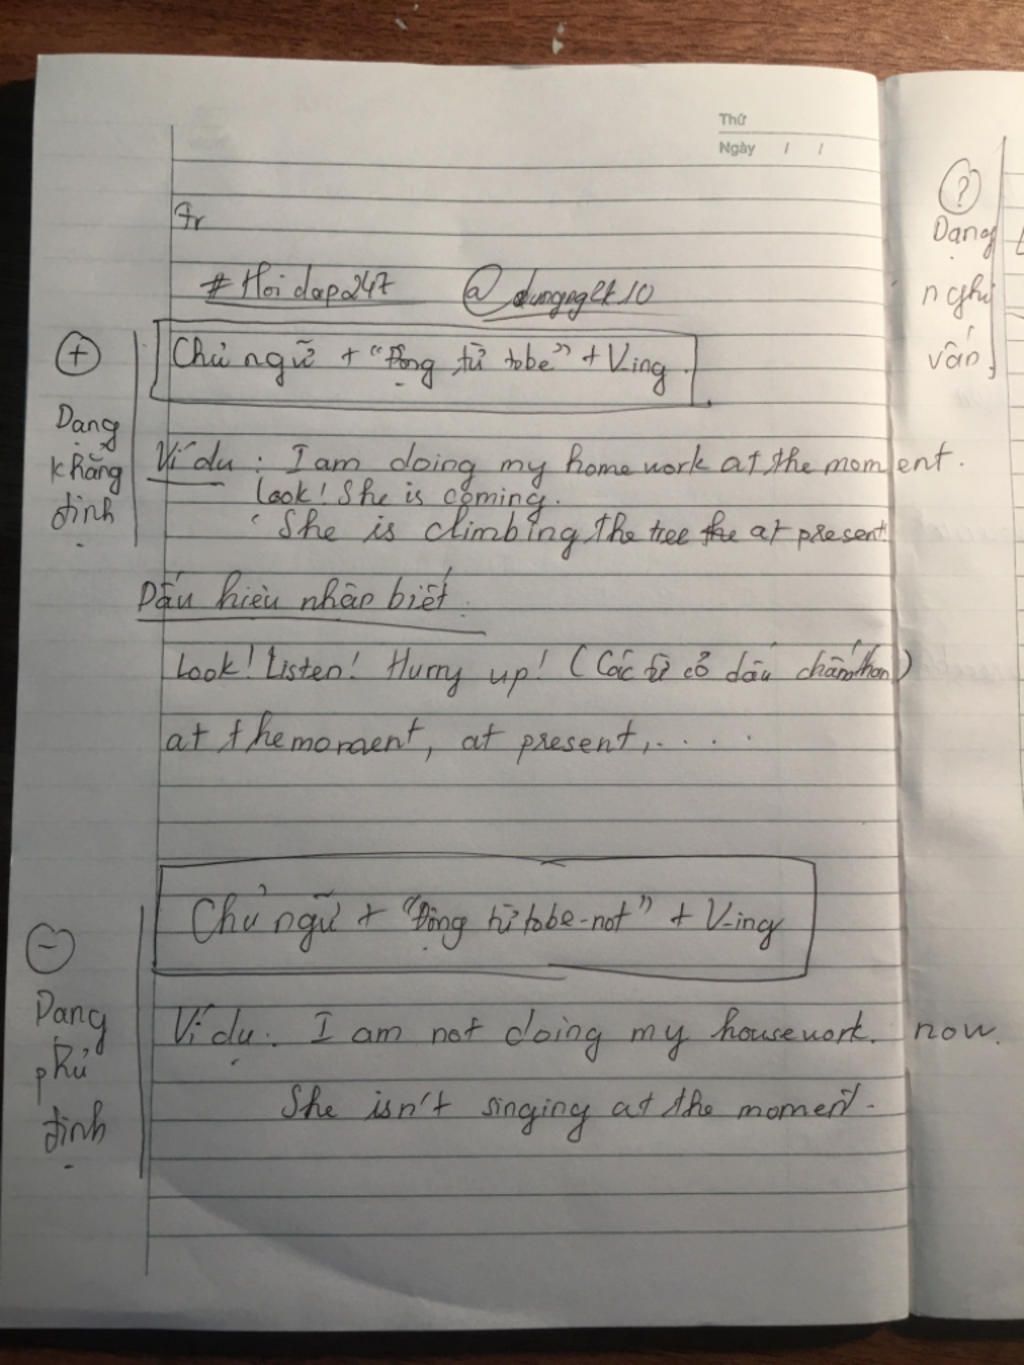 Thứ
Ngày / /
Tr
#Hoidap247 @dungnglt10
+
Dạng
khẳng
định
Chủ ngữ + "Động từ tobe" + V-ing.
Ví dụ: I am doing my homework at the moment.
Look! She is coming.
She is climbing the tree the at present
Dấu hiệu nhận biết.
Look! Listen! Hurry up! (Các từ có dấu chấm than)
at the moment, at present, . . . .
-
Dạng
phủ
định
Chủ ngữ + "Động từ tobe-not" + V-ing
Ví dụ: I am not doing my housework. now.
She isn't singing at the moment.
?
Dạng
nghi
vấn